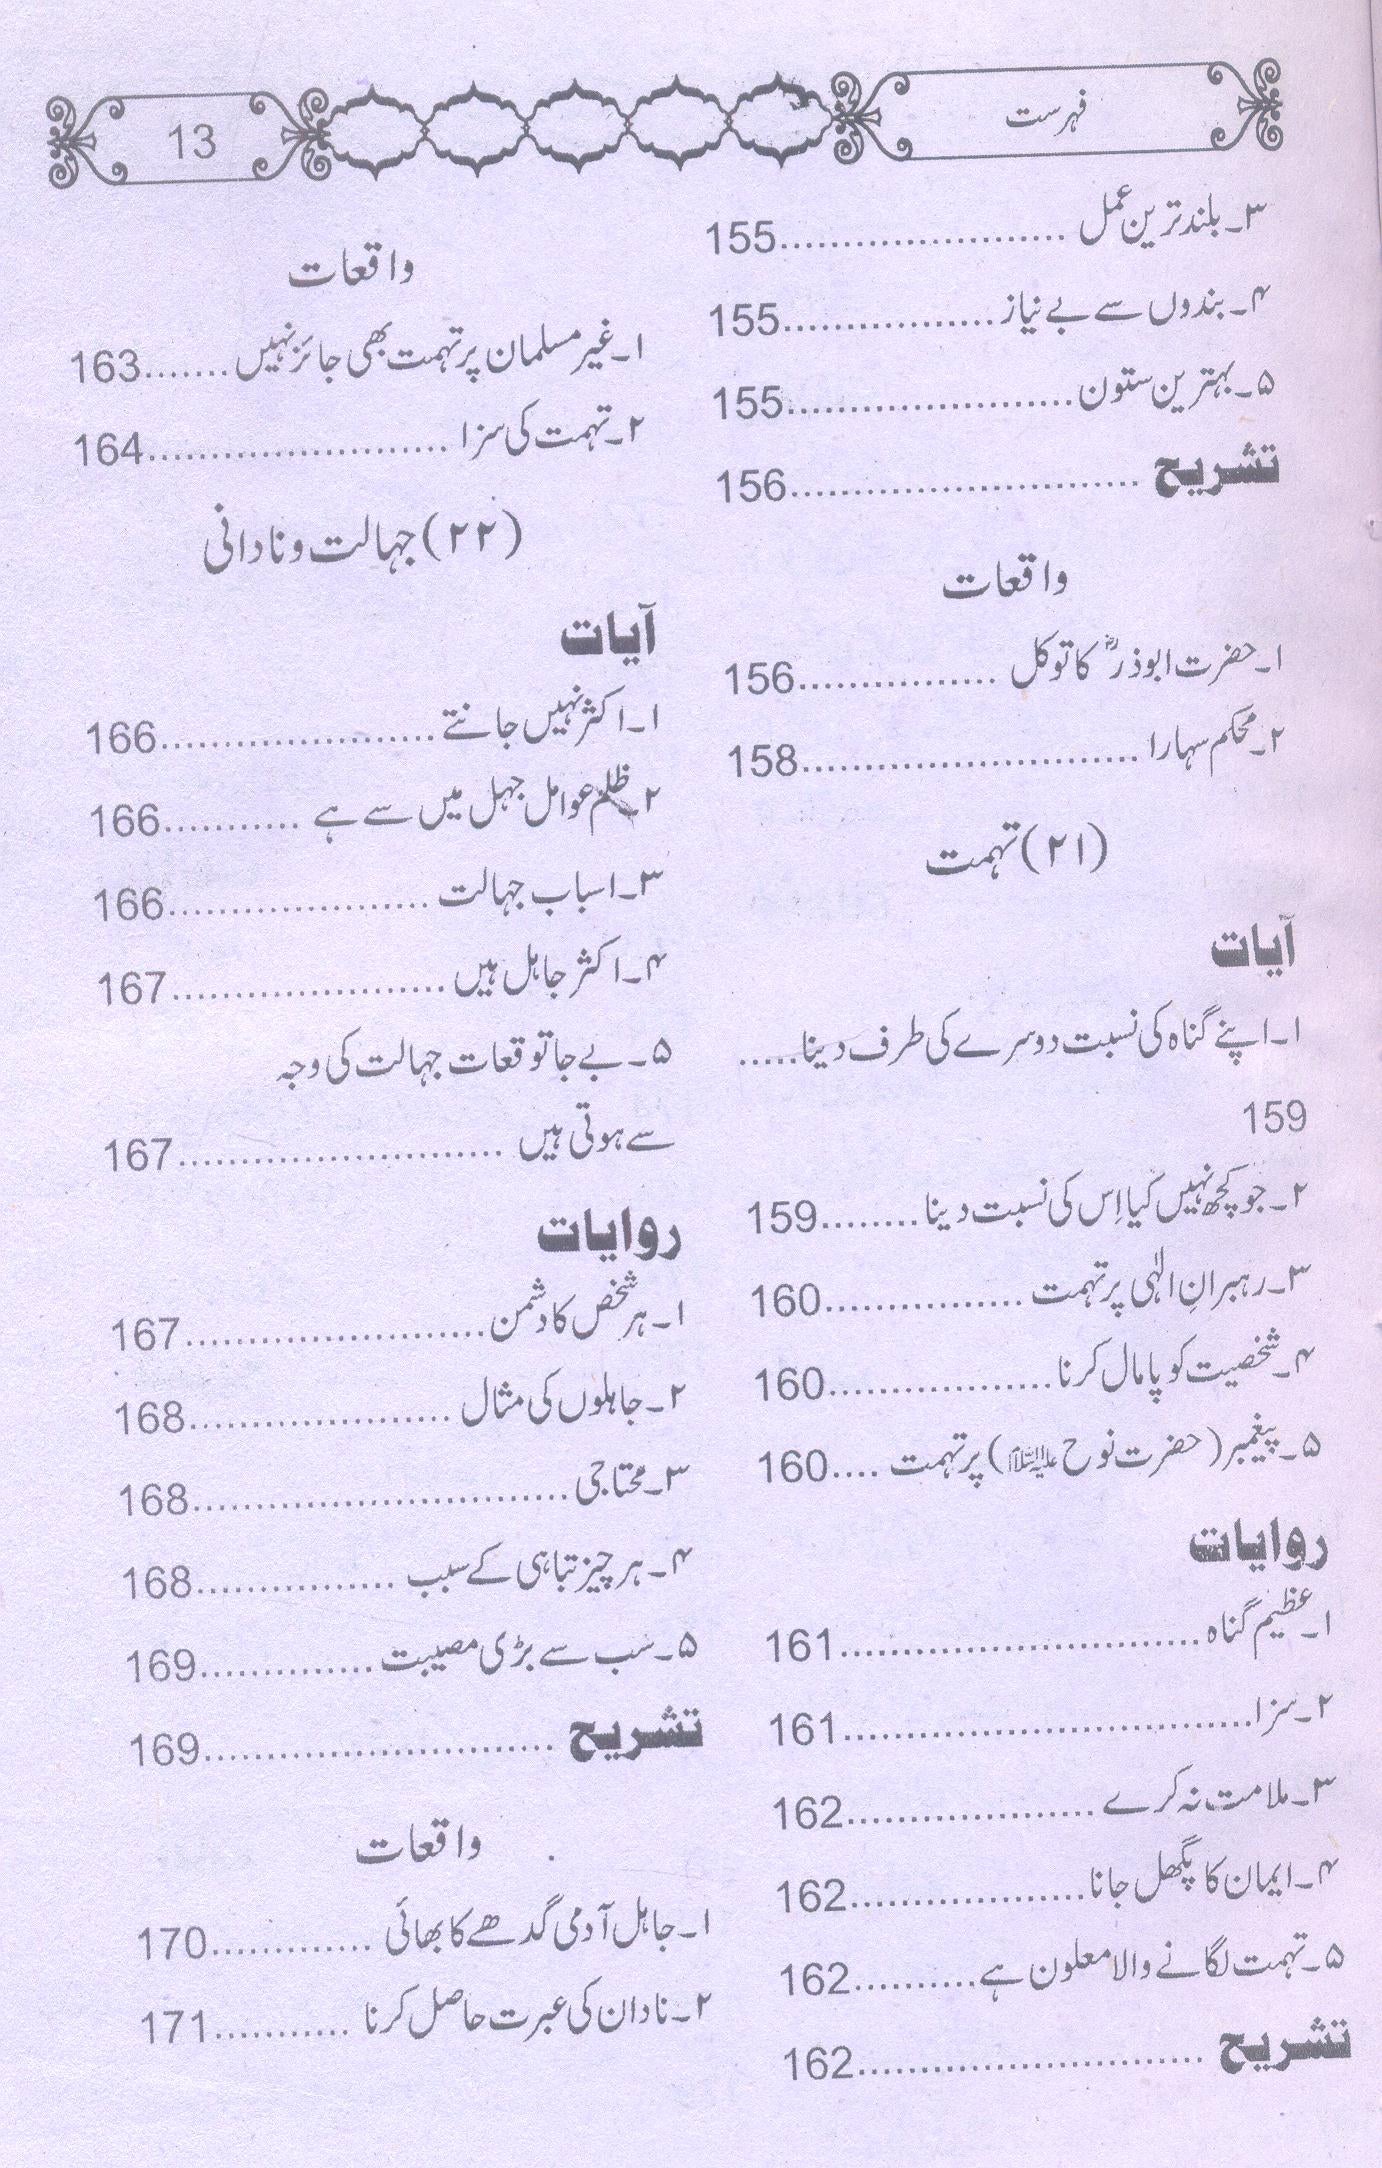 فہرست
13
۳۔ بلند ترین عمل ...................... 155
۴۔ بندوں سے بے نیاز ................. 155
۵۔ بہترین ستون ...................... 155
تشریح ........................... 156
واقعات
۱۔ حضرت ابوذرؓ کا توکل ................ 156
۲۔ محکم سہارا .......................... 158
(۲۱) تہمت
آیات
۱۔ اپنے گناہ کی نسبت دوسرے کی طرف دینا.....
159
۲۔ جو کچھ نہیں کیا اِس کی نسبت دینا ........ 159
۳۔ رہبرانِ الٰہی پر تہمت ................ 160
۴۔ شخصیت کو پامال کرنا .................. 160
۵۔ پیغمبر (حضرت نوح علیہ السلام) پر تہمت .... 160
روایات
۱۔ عظیم گناہ ............................ 161
۲۔ سزا ................................ 161
۳۔ ملامت نہ کرے .................... 162
۴۔ ایمان کا پگھل جانا ................... 162
۵۔ تہمت لگانے والا معلون ہے .......... 162
تشریح ........................... 162
واقعات
۱۔ غیر مسلمان پر تہمت بھی جائز نہیں ....... 163
۲۔ تہمت کی سزا ........................ 164
(۲۲) جہالت و نادانی
آیات
۱۔ اکثر نہیں جانتے ...................... 166
۲۔ ظلم عوامل جہل میں سے ہے ........... 166
۳۔ اسباب جہالت ..................... 166
۴۔ اکثر جاہل ہیں ...................... 167
۵۔ بے جا توقعات جہالت کی وجہ
سے ہوتی ہیں .......................... 167
روایات
۱۔ ہر شخص کا دشمن ........................ 167
۲۔ جاہلوں کی مثال ..................... 168
۳۔ محتاجی .............................. 168
۴۔ ہر چیز تباہی کے سبب ................ 168
۵۔ سب سے بڑی مصیبت .............. 169
تشریح ............................ 169
واقعات
۱۔ جاہل آدمی گدھے کا بھائی ............. 170
۲۔ نادان کی عبرت حاصل کرنا ........... 171